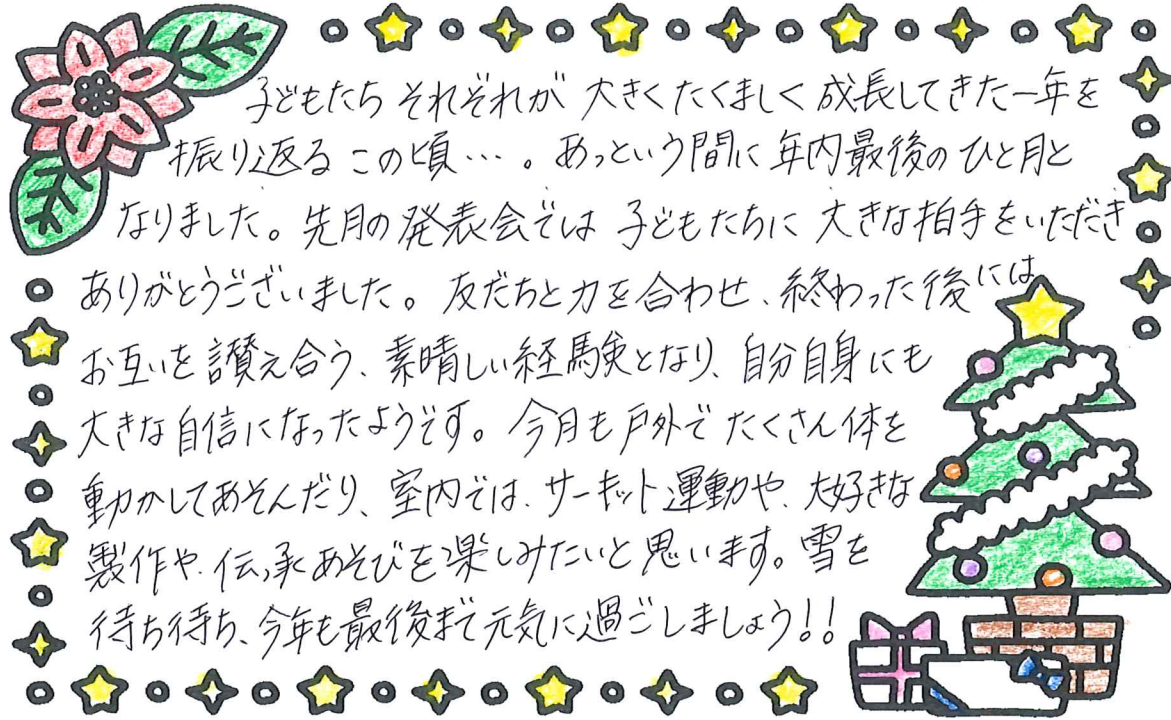 子どもたち それぞれが 大きくたくましく 成長してきた一年を
振り返る この頃…。あっという間に 年内最後の ひと月と
なりました。先月の発表会では 子どもたちに 大きな拍手をいただき
ありがとうございました。友だちと力を合わせ、終わった後には
お互いを讃え合う、素晴しい経験となり、自分自身にも
大きな自信になったようです。今月も戸外で たくさん体を
動かしてあそんだり、室内では、サーキット運動や、大好きな
製作や、伝承あそびを楽しみたいと思います。雪を
待ち待ち、今年も最後まで元気に過ごしましょう!!